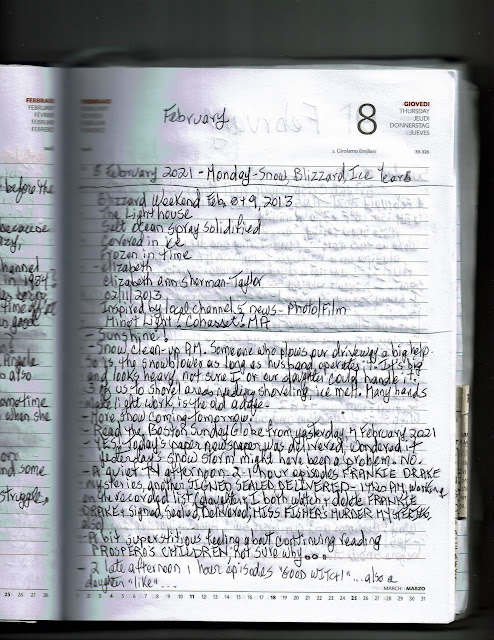 FEBBRAIO
FEBRUARY
FÉVRIER
FEBRUAR
FEBRERO
before the
because
channel
in 1984?
Angela
also
sometime
when she
and some
struggle,
February
8
GIOVEDI
THURSDAY
JEUDI
DONNERSTAG
JUEVES
s. Girolamo Emiliani
39-326
8 February 2021 - Monday - Snow, Blizzard, Ice Tears
Blizzard Weekend Feb. 8+9, 2013
The Lighthouse
Salt ocean spray solidified
Covered in ice
Frozen in time
- elizabeth
elizabeth ann sherman-Taylor
02/11/2013
Inspired by local channel 5 news - Photo/Film
Minot Light! Cohasset, MA
Sunshine!
- Snow clean-up A.M. Someone who plows our driveway a big help.
So is the snowblower as long as husband operates it. It's big
and looks heavy, not sure I or our daughter could handle it.
3 of us to shovel areas needing shoveling, ice melt. Many hands
make light work is the old adage.
- More snow coming tomorrow!
- Read the Boston Sunday Globe from yesterday, 7 February 2021
- YES, today's paper newspaper was delivered. Wondered if
yesterday's snow storm might have been a problem. NO.
- A quiet TV afternoon. 2-1 hour episodes FRANKIE DRAKE
mysteries, another SIGNED SEALED DELIVERED - 1 1/2 hrs AM working
on the recorded list (daughter & I both watch & delete FRANKIE
DRAKE & Signed, Sealed, Delivered, MISS FISHER'S MURDER MYSTERIES,
also)
- A bit superstitious feeling about continuing reading
PROSPERO'S CHILDREN, not sure why...
- 2 late afternoon 1 hour episodes "GOOD WITCH"... also a
daughter "like"...
MARCH - MARZO
25 26 27 28
1 2 3 4 5 6 7 8 9 10 11 12 13 14 15 16 17 18 19 20 21 22 23 24 25 26 27 28 29 30 31